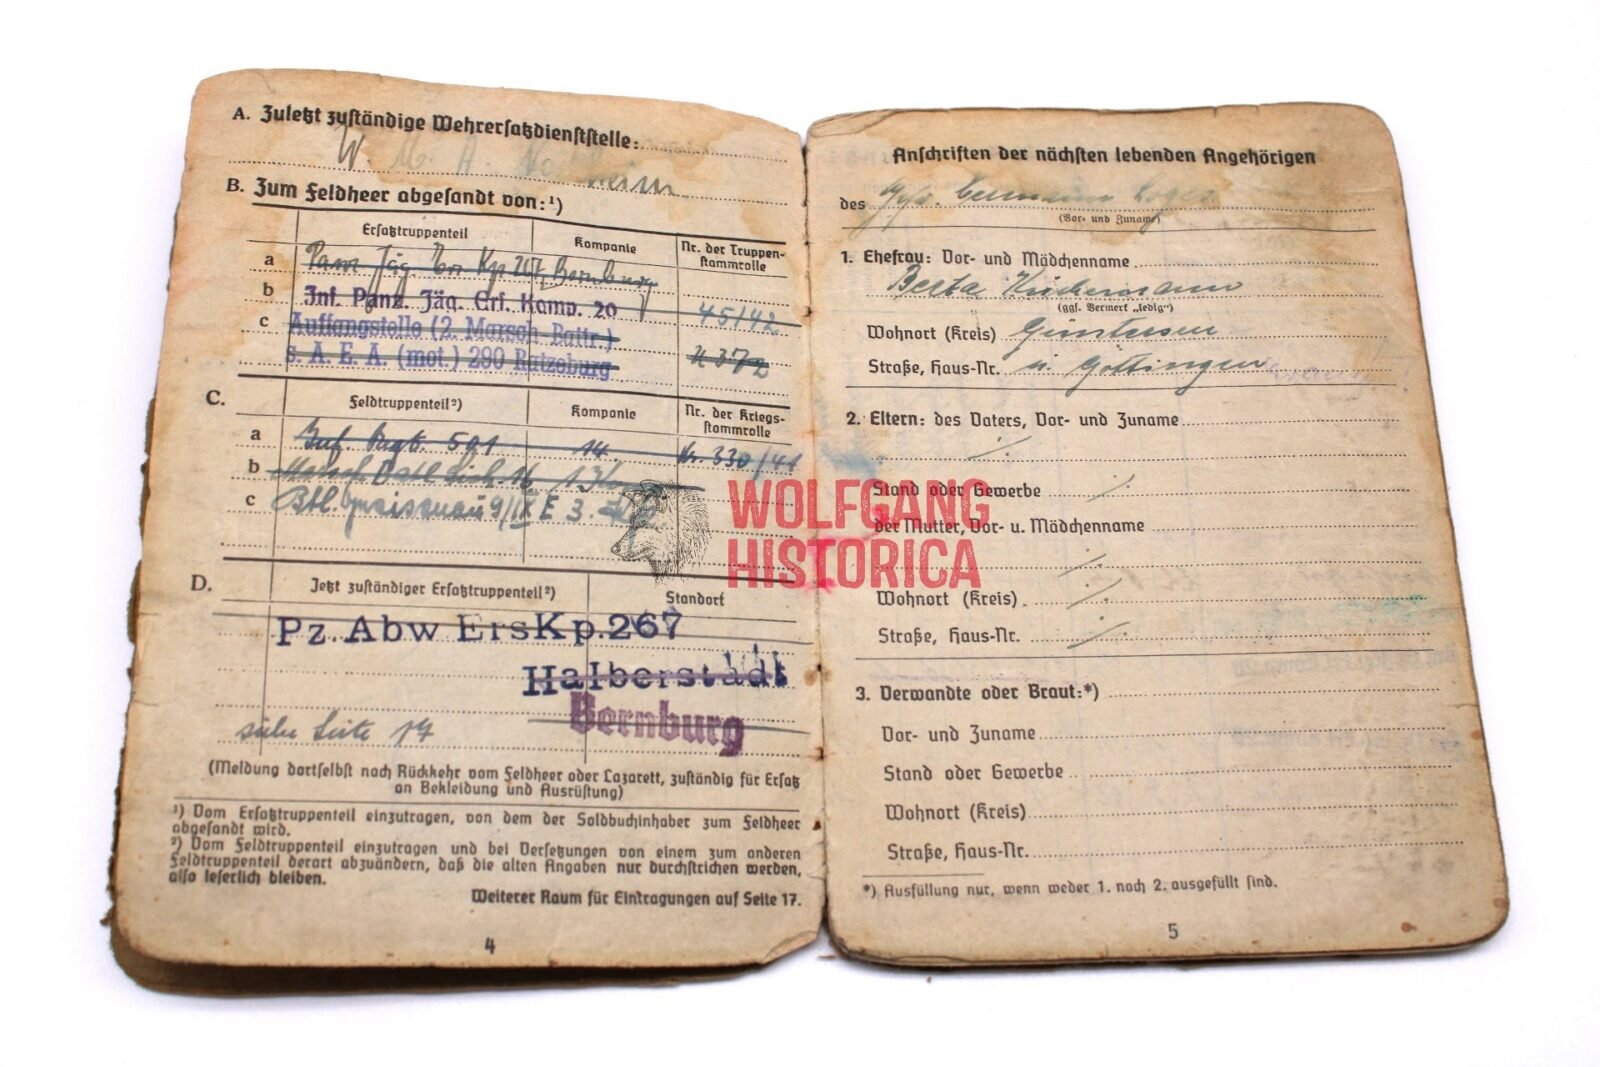 A. Zuletzt zuständige Wehrersatzdienststelle:
W. M. A.
B. Zum Feldheer abgesandt von:¹)
Ersatztruppenteil
Kompanie
Nr. der Truppen-
stammrolle
a
Jäg. Kp 267, Bernburg
b
Inf. Panz. Jäg. Ers. Komp. 20
45/42
c
Auffangstelle (2. Marsch Battr.)
s. A. E. A. (mot.) 290 Ratzeburg
4372
C.
Feldtruppenteil²)
Kompanie
Nr. der Kriegs-
stammrolle
a
Inf. Regt. 501
14.
Nr. 330/41
b
Marsch
c
Btl. Gneisenau 9/IX E 3.
D.
Jetzt zuständiger Ersatztruppenteil²)
Standort
Pz. Abw ErsKp. 267
Halberstadt
Bernburg
siehe Seite 17
(Meldung dortselbst nach Rückkehr vom Feldheer oder Lazarett, zuständig für Ersatz
an Bekleidung und Ausrüstung)
¹) Vom Ersatztruppenteil einzutragen, von dem der Soldbuchinhaber zum Feldheer
abgesandt wird.
²) Vom Feldtruppenteil einzutragen und bei Versetzungen von einem zum anderen
Feldtruppenteil derart abzuändern, daß die alten Angaben nur durchstrichen werden,
also leserlich bleiben.
Weiterer Raum für Eintragungen auf Seite 17.
4
Anschriften der nächsten lebenden Angehörigen
des Gefr. Hermann
(Vor- und Zuname)
1. Ehefrau: Vor- und Mädchenname
Berta
(ggf. Vermerk „ledig")
Wohnort (Kreis) Güntersen
Straße, Haus-Nr. ü. Göttingen
2. Eltern: des Vaters, Vor- und Zuname
./.
Stand oder Gewerbe ./.
der Mutter, Vor- u. Mädchenname
./.
Wohnort (Kreis) ./.
Straße, Haus-Nr. ./.
3. Verwandte oder Braut:*)
Vor- und Zuname
Stand oder Gewerbe
Wohnort (Kreis)
Straße, Haus-Nr.
*) Ausfüllung nur, wenn weder 1. noch 2. ausgefüllt sind.
5
WOLFGANG
HISTORICA